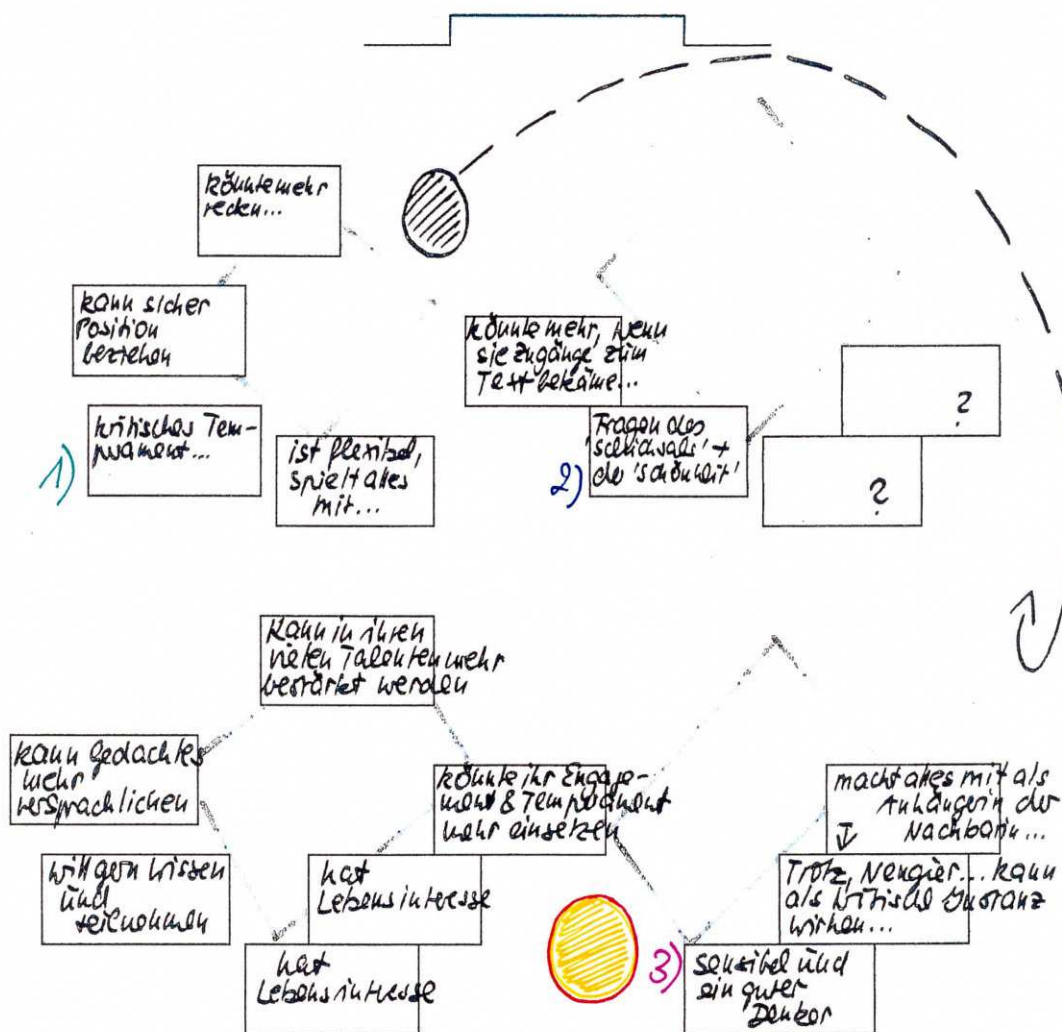 könnte mehr
reden...
kann sicher
Position
beziehen
1)
kritisches Tem-
perament...
ist flexibel,
spielt alles
mit...
könnte mehr, wenn
sie Zugänge zum
Text bekäme...
2)
Fragen des
'Schicksals' +
der 'Schönheit'
?
?
Kann in ihren
vielen Talenten mehr
bestärkt werden
kann Gedachtes
mehr
versprachlichen
will gern wissen
und
teilnehmen
hat
Lebensinteresse
hat
Lebensinteresse
könnte ihr Engage-
ment & Temperament
mehr einsetzen
macht alles mit als
Anhängerin der
Nachbarin...
Trotz, Neugier... kann
als kritische Instanz
wirken...
3)
sensibel und
ein guter
Denker